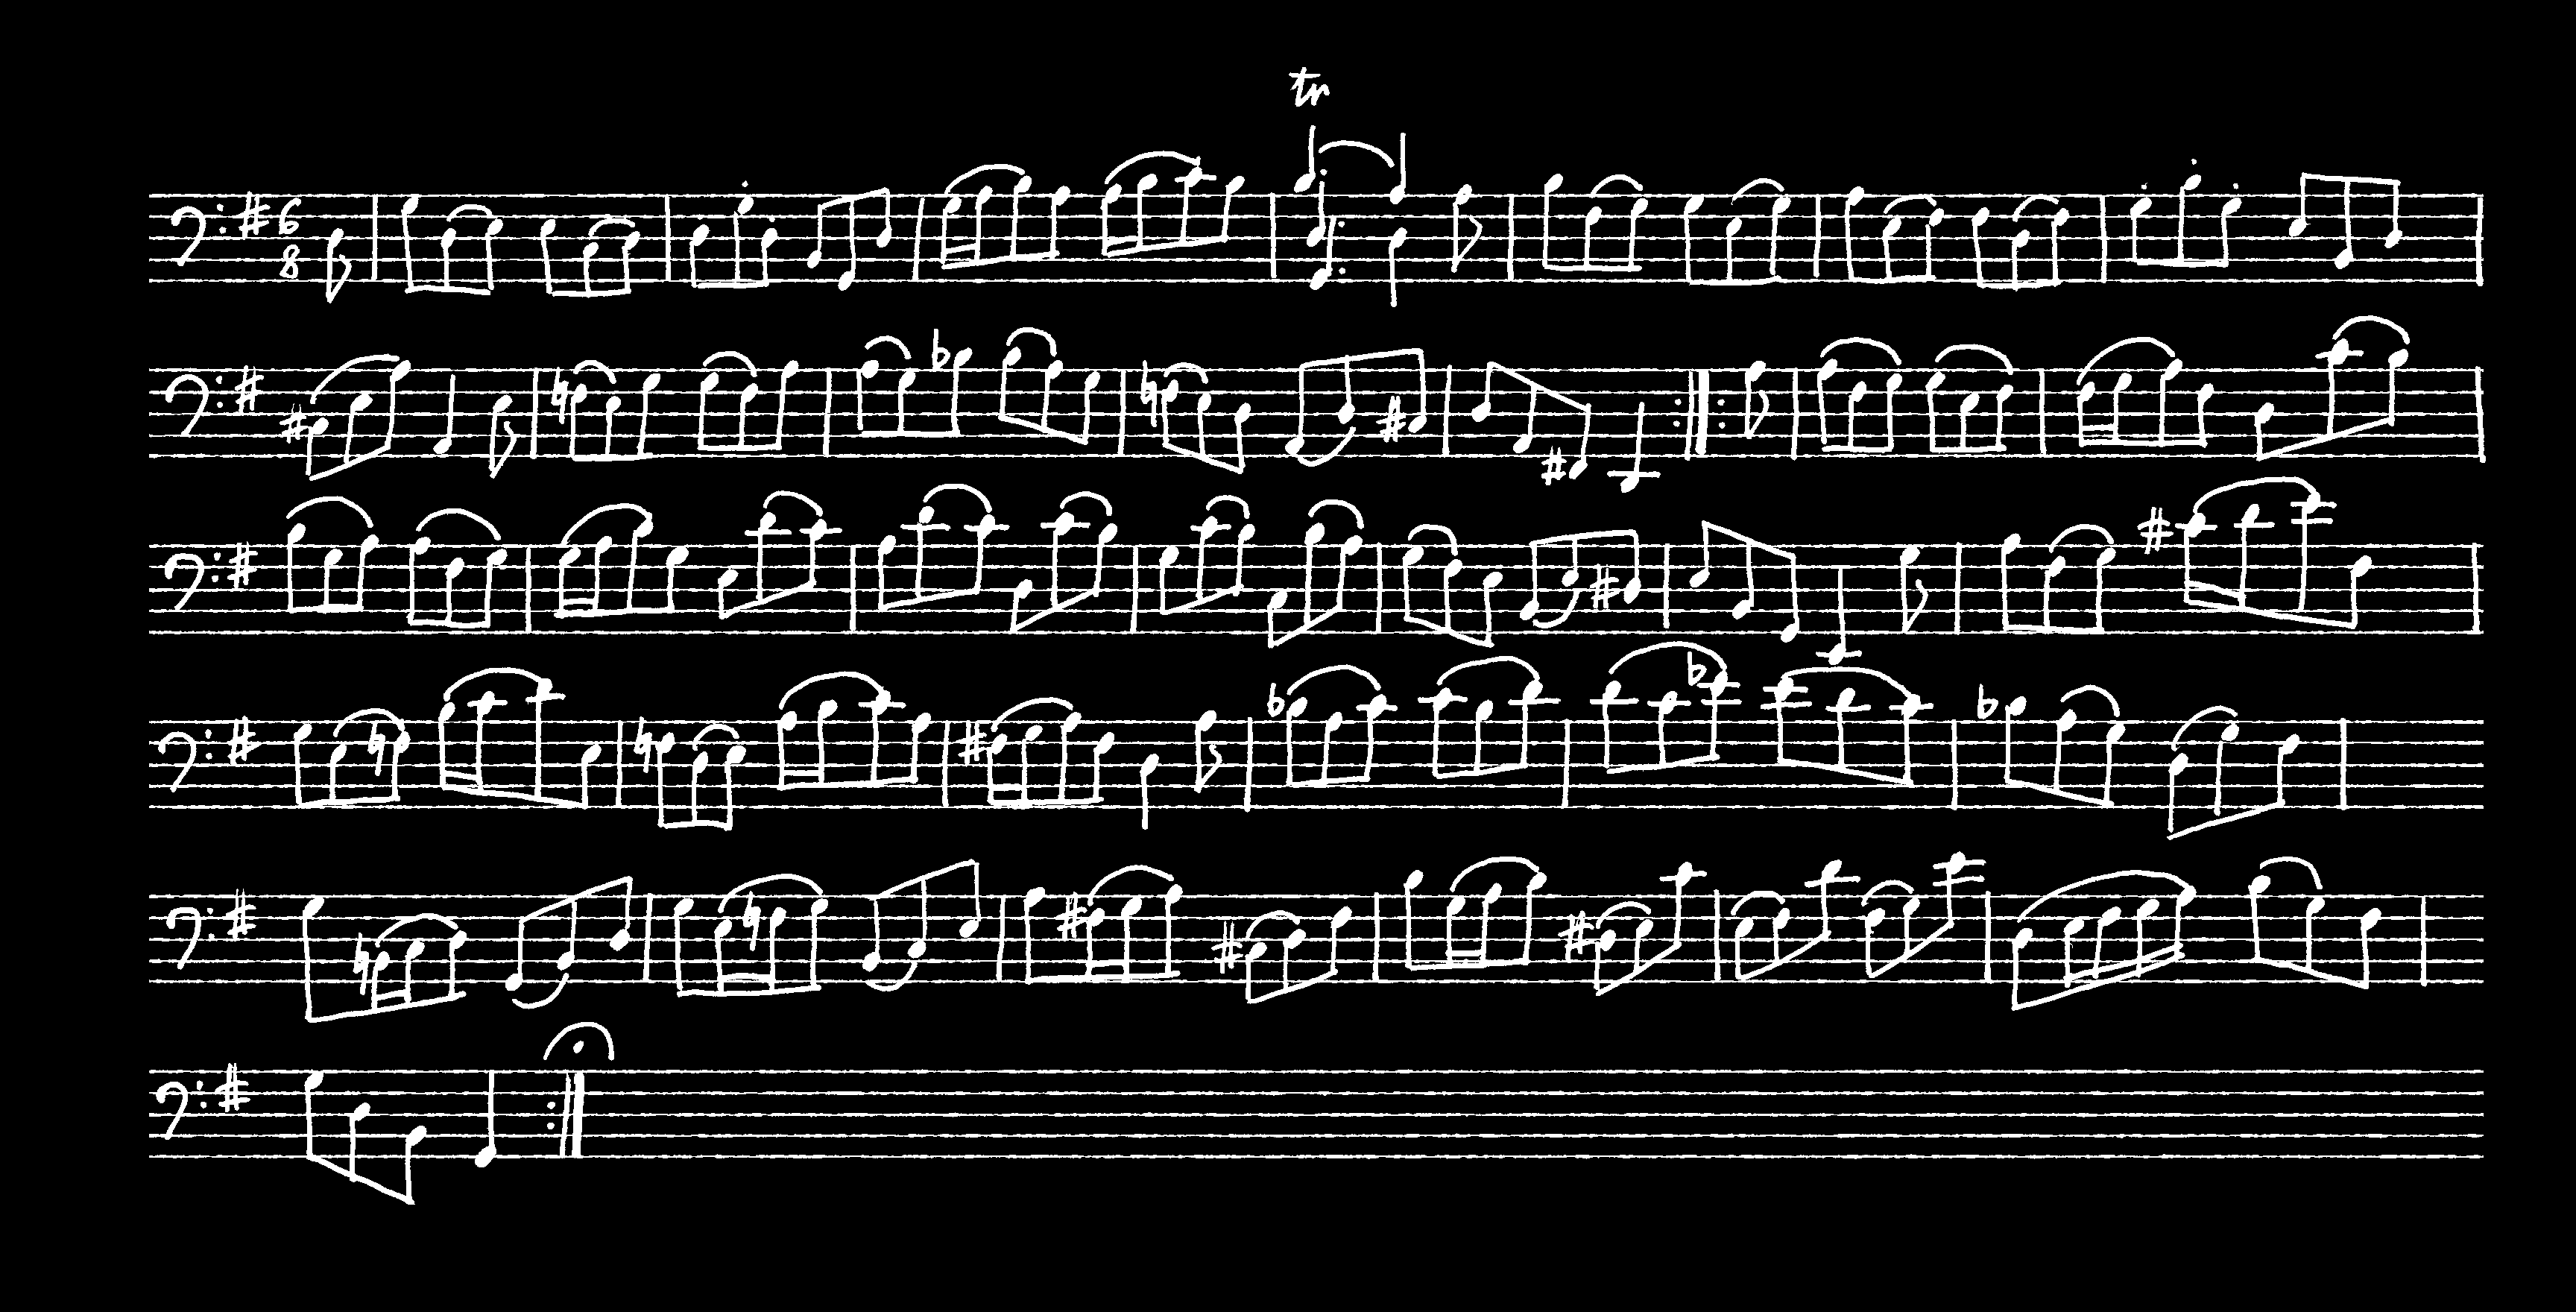 tr
6
8